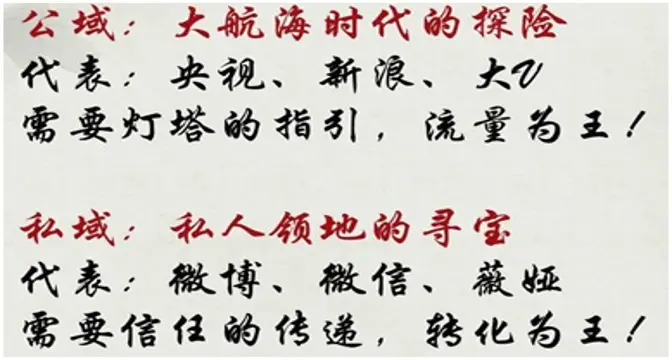 公域：大航海时代的探险
代表：央视、新浪、大V
需要灯塔的指引，流量为王！
私域：私人领地的寻宝
代表：微博、微信、薇娅
需要信任的传递，转化为王！